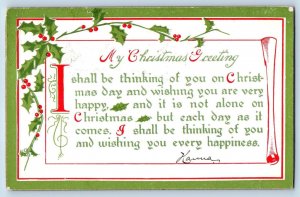 My Christmas Greeting
I shall be thinking of you on Christ-
mas day and wishing you are very
happy, and it is not alone on
Christmas but each day as it
comes. I shall be thinking of you
and wishing you every happiness.